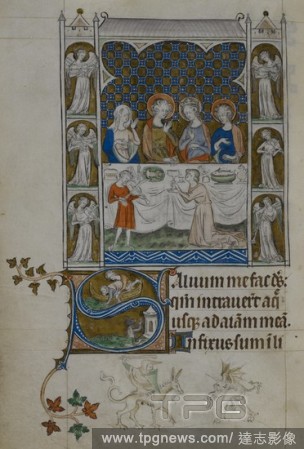 Aluum me fac ds:
qm intrauert aq
usq; ad aiam mea.
Infixus sum i li
TPG
www.tpgnews.com/ 達志影像